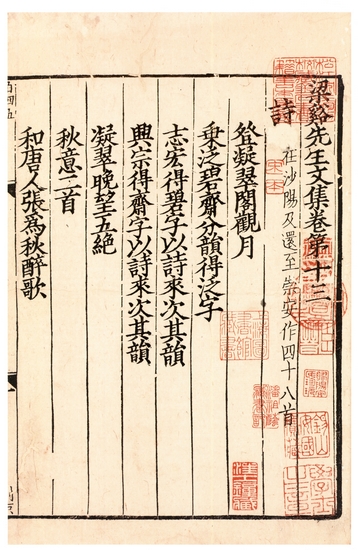 梁谿先生文集卷第十三
詩
在沙陽及還至崇安作四十八首
登凝翠閣觀月
乗泛碧齋分韻得泛字
志宏得碧字以詩來次其韻
興宗得齋字以詩來次其韻
凝翠晚望五絶
秋意二首
和唐人張爲秋醉歌
宋本